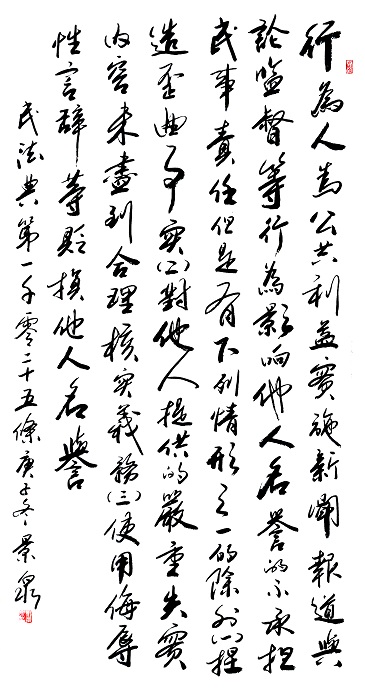 行為人為公共利益實施新聞報道與
論監督等行為影响他人名譽的不承担
民事責任但是有下列情形之一的除外(一)捏
造歪曲事實(二)對他人提供的嚴重失實
内容未盡到合理核实義務(三)使用侮辱
性言辭等貶損他人名譽
民法典第一千零二十五條庚子冬景泉